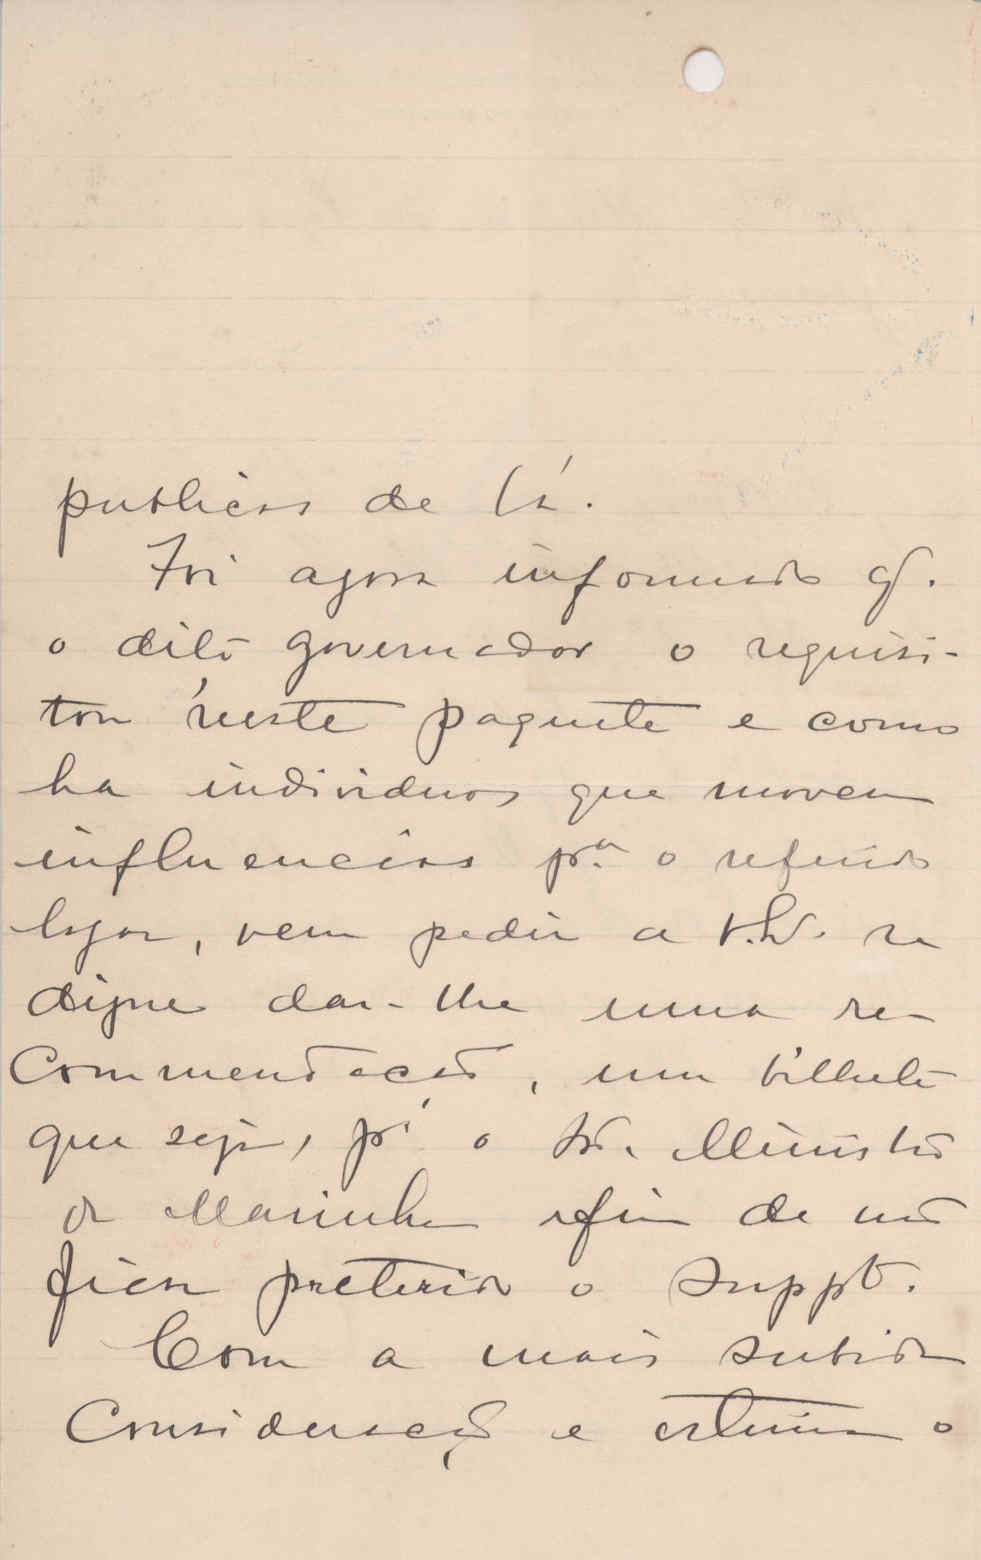 publicas de lá.
Foi agora informado q.
o dito governador o requisi-
tou n'este paquete e como
ha individuos que movem
influencias p.ª o referido
logar, vem pedir a V. se
digne dar-lhe uma re-
commendação, um bilhete
que seja, p.ª o Sr. Ministro
da Marinha afim de não
ficar preterido o supp.te
Com a mais subida
consideração e estima o